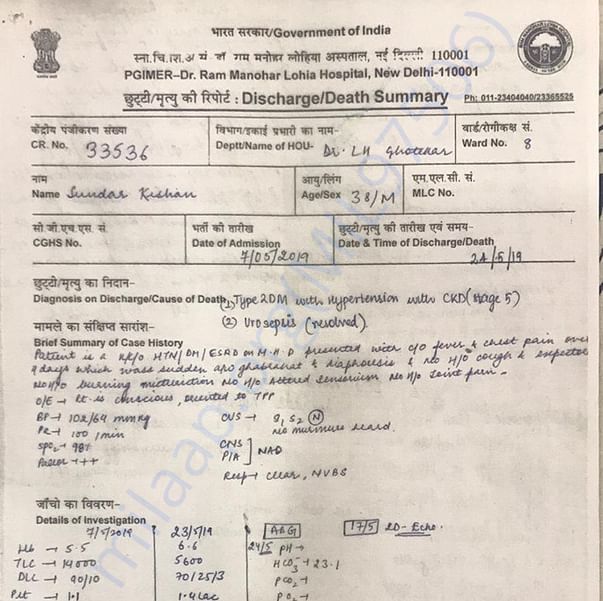 भारत सरकार/Government of India
स्ना.चि.शि.अ सं. डॉ राम मनोहर लोहिया अस्पताल, नई दिल्ली 110001
PGIMER–Dr. Ram Manohar Lohia Hospital, New Delhi-110001
छुट्टी/मृत्यु की रिपोर्ट : Discharge/Death Summary
Ph: 011-23404040/23365525
केंद्रीय पंजीकरण संख्या
CR. No. 33536
विभाग/इकाई प्रभारी का नाम-
Deptt/Name of HOU- Dr. LH
वार्ड/रोगीकक्ष सं.
Ward No. 8
नाम
Name Sundar Kishan
आयु/लिंग
Age/Sex 38/M
एम.एल.सी. सं.
MLC No.
सी.जी.एच.एस. सं.
CGHS No.
भर्ती की तारीख
Date of Admission
7/05/2019
छुट्टी/मृत्यु की तारीख एवं समय-
Date & Time of Discharge/Death
24/5/19
छुट्टी/मृत्यु का निदान-
Diagnosis on Discharge/Cause of Death (1) Type 2DM with Hypertension with CKD (Stage 5)
(2) Urosepsis (resolved)
मामले का संक्षिप्त सारांश-
Brief Summary of Case History
Patient is a K/C/O HTN/DM/ESRD on M.H.D presented with c/o fever & chest pain over
4 days which was sudden a/o ghabrahat & diaphoresis & no H/o cough &
No H/o burning micturition No H/o Altered Sensorium No H/o Joint pain -
O/E → Pt. is conscious, oriented to TPP
BP → 102/64 mmHg
CVS → S1 S2 (N)
PR → 100/min
no murmurs heard.
SpO2 → 98%
CNS
Pallor → ++
P/A ] NAD
Resp → clear, NVBS
जाँचो का विवरण-
Details of Investigation
7/5/2019
23/5/19
ABG
17/5 2D-Echo
Hb → 5.5
6.6
24/5 pH →
TLC → 14000
5600
HCO3 → 23.1
DLC → 90/10
70/25/3
PCO2 →
Plt → 1.1
1.4 lac
PO2 →